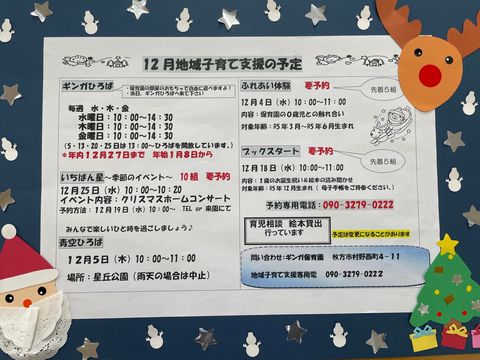 12月地域子育て支援の予定
ギンガひろば
・保育園の部屋のおもちゃで自由に遊べますよ!
・当日、ギンガひろばへ来て下さい
毎週 水・木・金
水曜日:10:00~14:30
木曜日:10:00~14:30
金曜日:10:00~14:30
(5・13・20・25日は13:00~ひろばを開放しています。)
*年内12月27日まで 年始1月8日から
いちばん星~季節のイベント~ 10組 要予約
12月25日(水)10:00~10:20
イベント内容:クリスマスホームコンサート
予約方法:12月19日(水)10:00~ TEL or 来園にて
みんなで楽しいひと時を過ごしましょう♪
青空ひろば
12月5日(木)10:00~11:00
場所:星丘公園(雨天の場合は中止)
ふれあい体験 要予約
先着5組
12月4日(水)10:00~11:00
内容:保育園の0歳児との触れ合い
対象年齢:R5年3月~R5年6月生まれ
ブックスタート 要予約
先着5組
12月18日(水)10:00~11:00
内容:1歳のお誕生祝い&絵本の読み聞かせ
対象年齢:R5年12月生まれ(母子手帳をご持参ください。)
予約専用電話:090-3279-0222
育児相談 絵本貸出
行っています
予定は変更になることがあります
問い合わせ:ギンガ保育園 枚方市村野西町4-11
地域子育て支援専用電 090-3279-0222